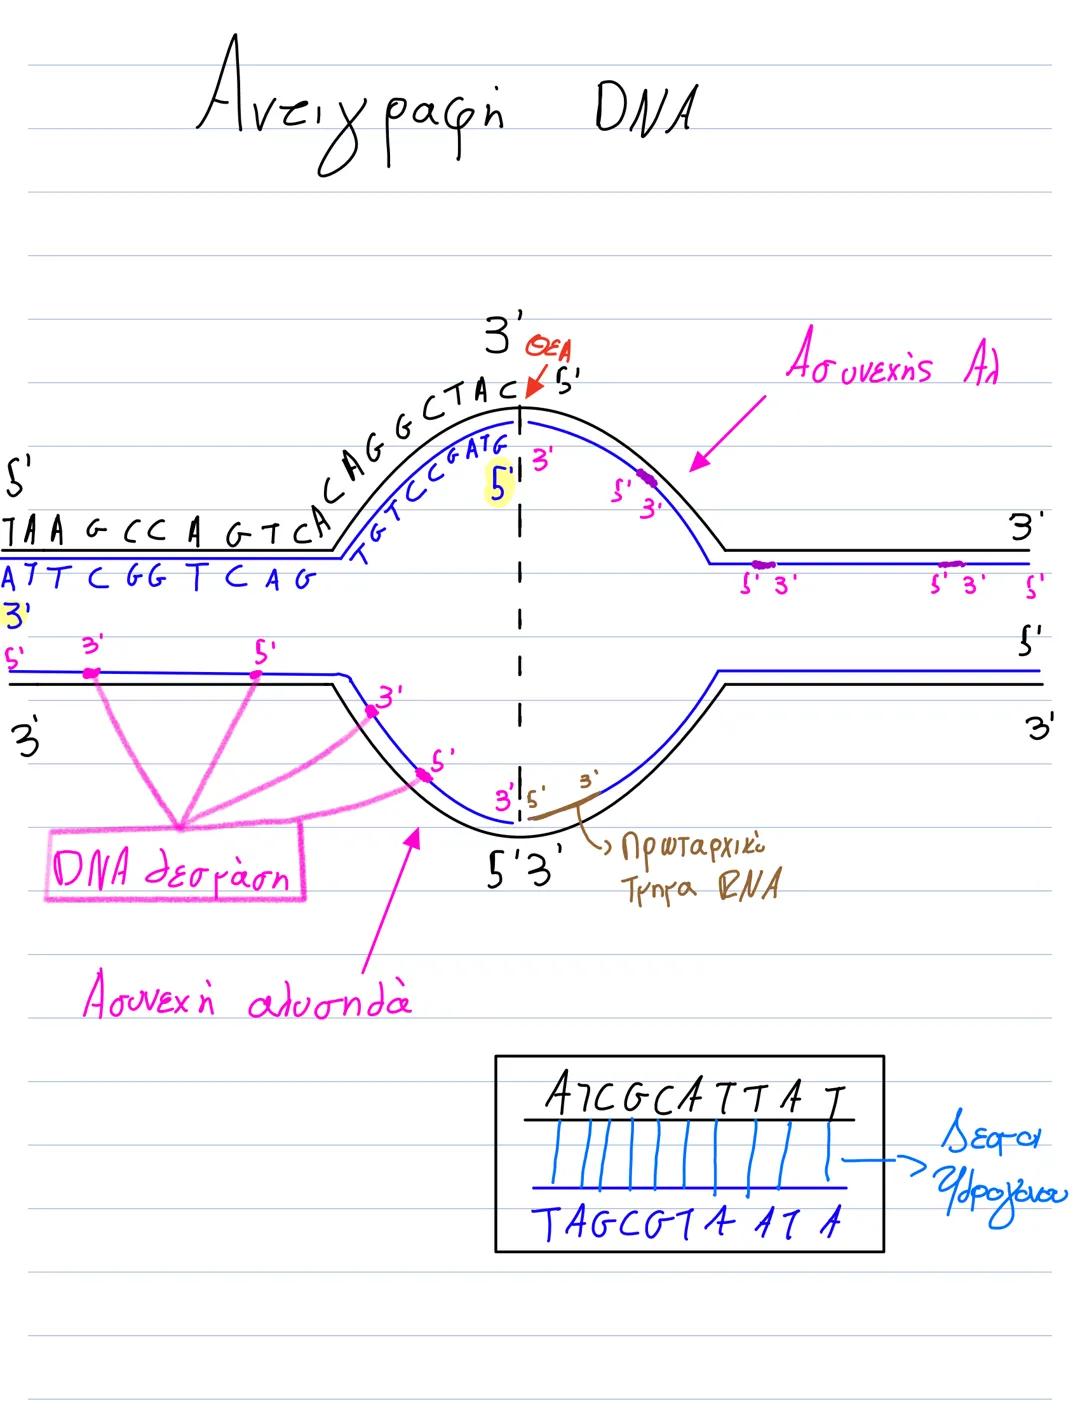 Αντιγραφή DNA
3'
ΘΕΑ
5'
Ασυνεχής Αλ
CAGGCTAC
TGTCCGATG
5'
3'
5' 3'
5'
TAAGCCAGTCA
3'
ATTCGGTCAG
3'
5' 3'
5' 3'
5'
5' 3' 5'
5'
3'
3'
3'
5'
3' 5' 3'
DNA δεσμάση
5' 3'
Πρωταρχικό
Τμήμα RNA
Ασυνεχή αλυσηδά
ATCGCATTAT
TAGCGTAATA
Δεσμοι
Υδρογόνου